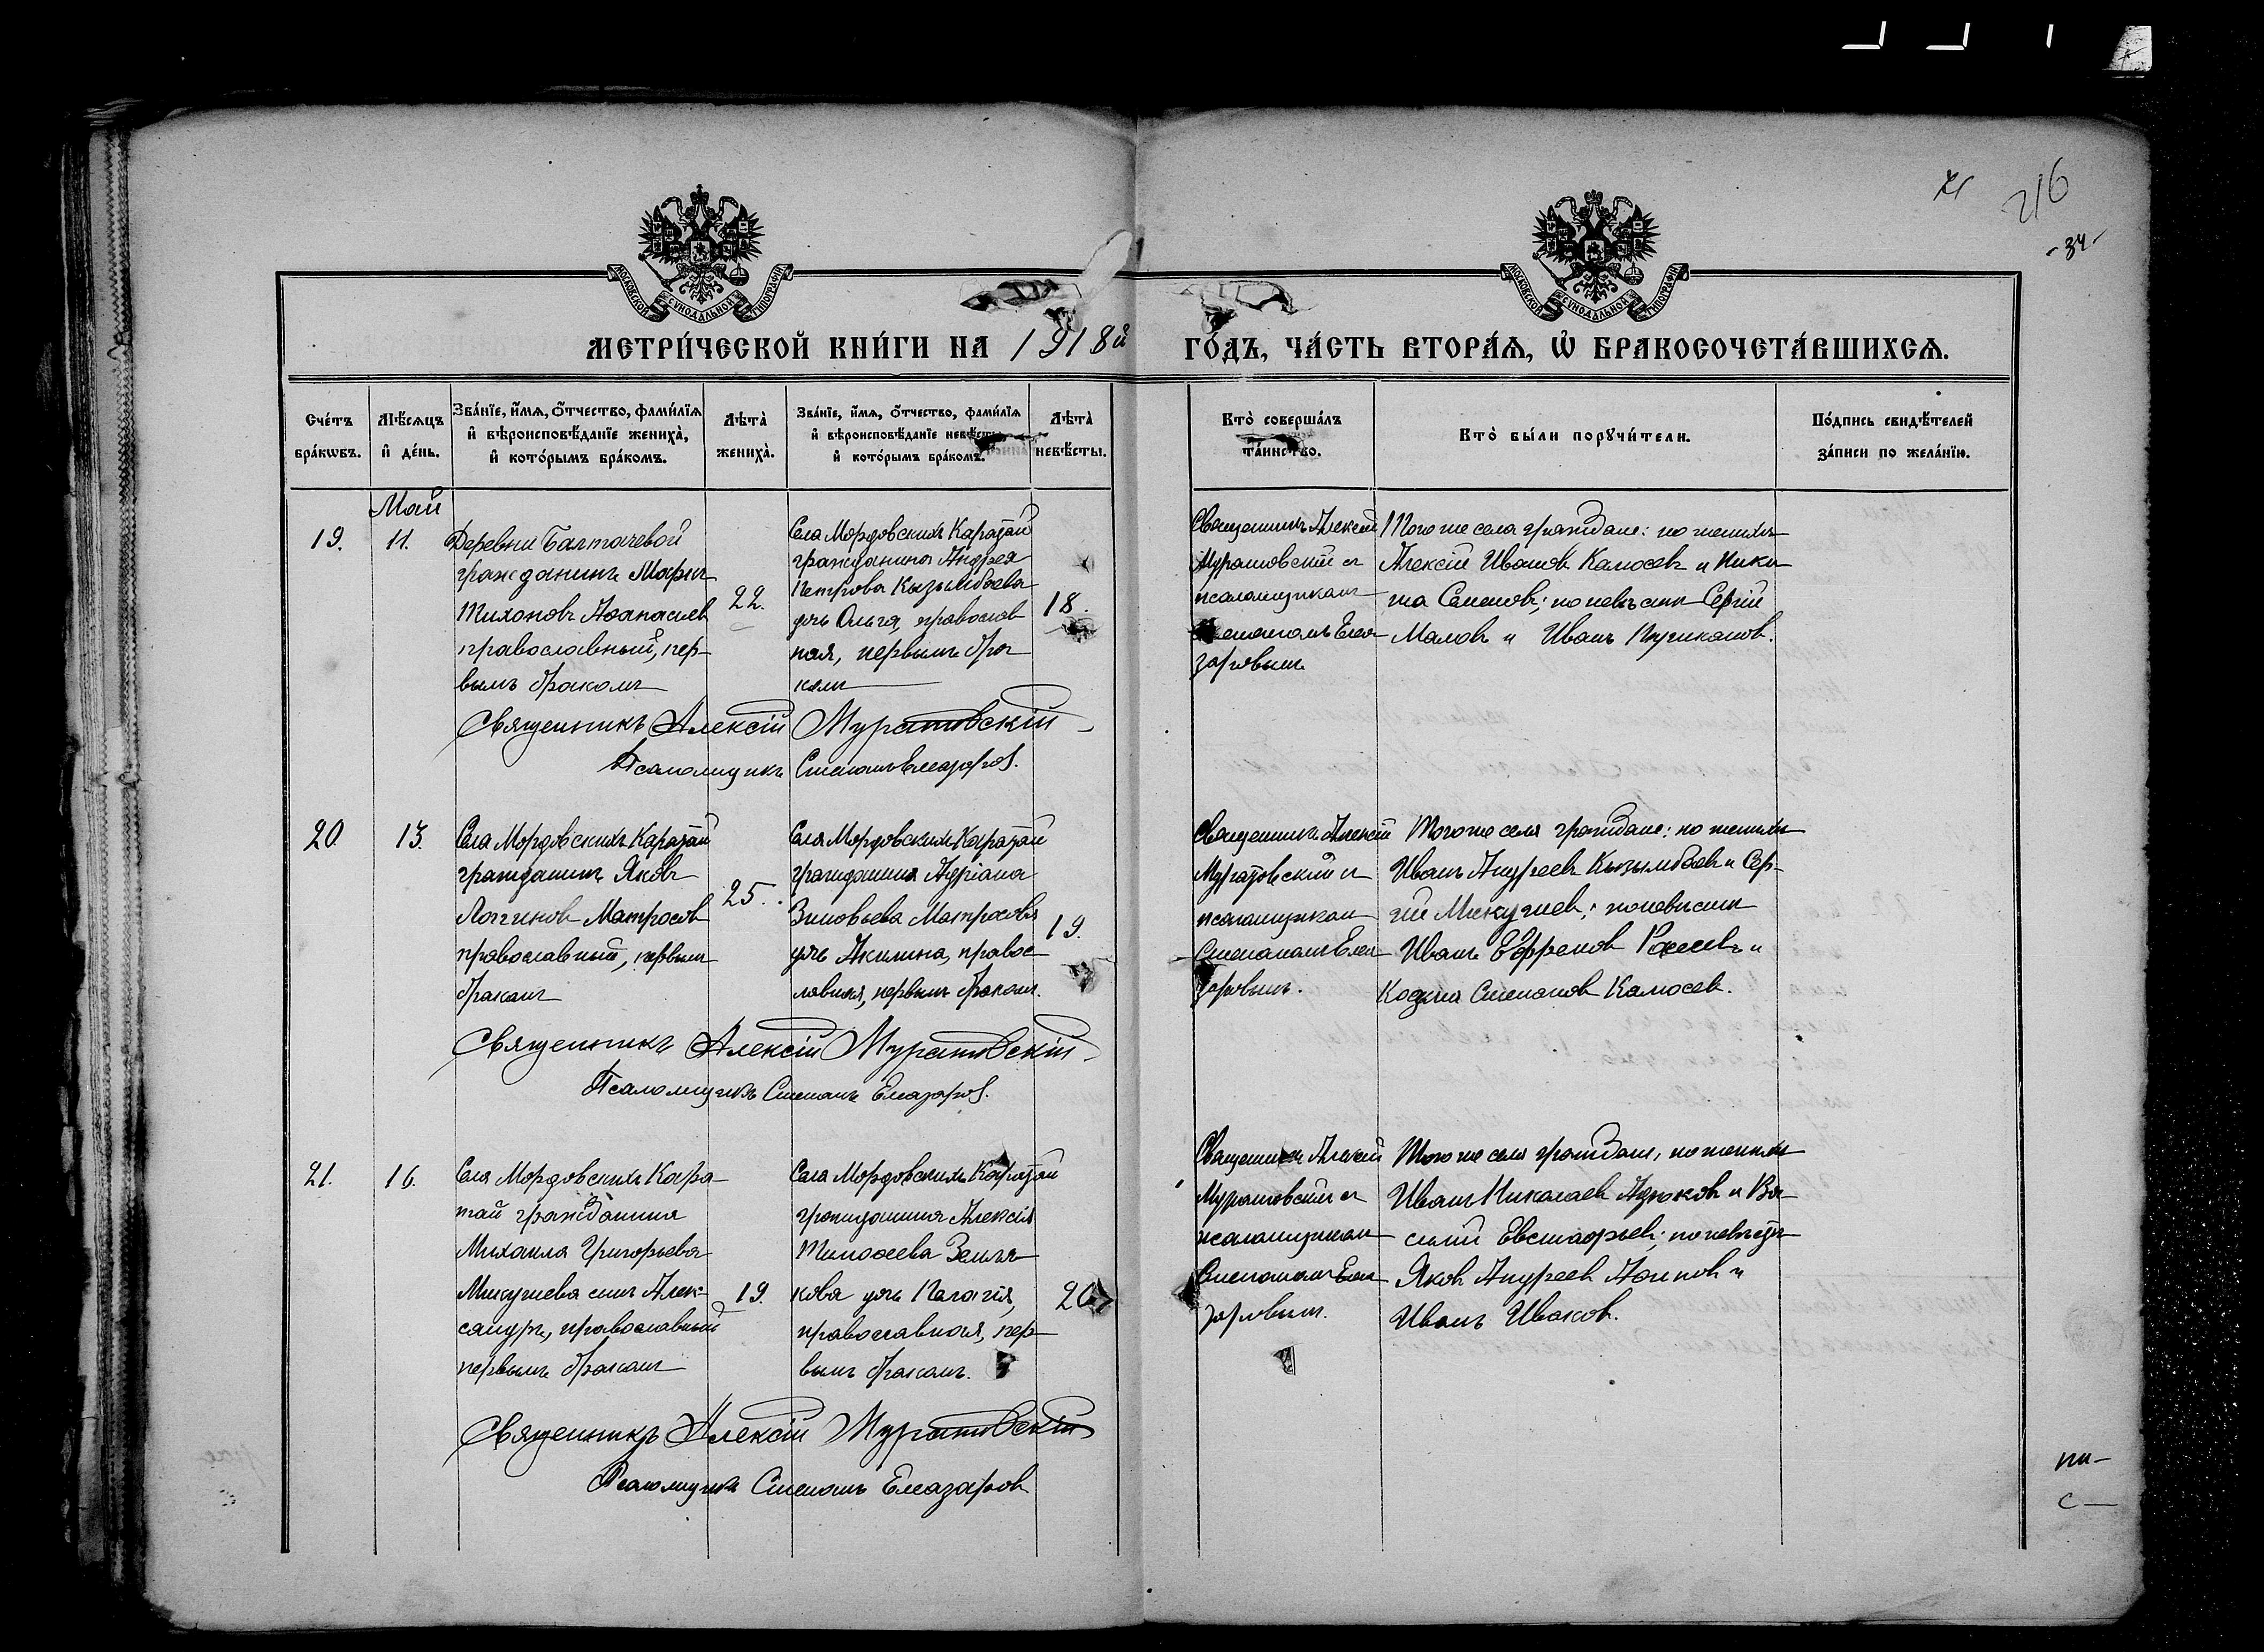 216
-34-
МОСКОВСКОЙ СѴНОДАЛЬНОЙ ТИПОГРАФІИ
МОСКОВСКОЙ СѴНОДАЛЬНОЙ ТИПОГРАФІИ
МЕТРИ́ЧЕСКОЙ КНИ́ГИ НА 1918й ГО́ДЪ, ЧА́СТЬ ВТОРА́Я, Ѡ҆ БРАКОСОЧЕТА́ВШИХСѦ.
Сче́тъ
бра́кѡвъ.
Мѣ́сѧцъ
и҆ де́нь.
Зва́нїе, и҆́мѧ, ѻ҆́тчество, фами́лїѧ
и҆ вѣроисповѣ́данїе жениха̀,
и҆ кото́рымъ бра́комъ.
Лѣта̀
жениха̀.
Зва́нїе, и҆́мѧ, ѻ҆́тчество, фами́лїѧ
и҆ вѣроисповѣ́данїе невѣ́сты
и҆ кото́рымъ бра́комъ.
Лѣта̀
невѣ́сты.
Кто̀ соверша́лъ
та́инство.
Кто̀ бы́ли порꙋчи́тели.
По́дпись свидѣ́телей
за́писи по жела́нїю.
Май
19.
11.
Деревни Балтачевой
гражданинъ Маркъ
Тихоновъ Аѳанасіев
православный, пер-
вымъ бракомъ
22.
Села Мордовскихъ Каратай
гражданина Андрея
Петрова Кызылбаева
дчь Ольга, православ
ная, первымъ бра
комъ
18.
Священникъ Алексій
Муратовскій и
псаломщикомъ
Степаномъ Елеа-
заровымъ
Того же села граждане: по женихѣ
Алексій Ивановъ Калюсевъ и Ники
та Семеновъ; по невѣстѣ Сергій
Маловъ и Иванъ
Священникъ Алексій Муратовскій
Псаломщикъ Степанъ Елеазаров.
20.
13.
Села Мордовскихъ Каратай
гражданинъ Яковъ
Логиновъ Матросовъ
православный, первымъ
бракомъ
25.
Села Мордовскихъ Каратай
гражданина Адріана
Зиновьева Матросова
дчь Акилина, правос-
лавная, первымъ бракомъ.
19.
Священникъ Алексій
Муратовскій и
псаломщикомъ
Степаномъ Елеа
заровымъ.
Того же села граждане: по женихѣ
Иванъ Андреевъ Кызылбаевъ и Сер-
гій Микушевъ; по невѣстѣ
Иванъ Ефремовъ и
Козьма Степановъ Калюсев.
Священникъ Алексій Муратовскій
Псаломщикъ Степанъ Елеазаров.
21.
16.
Села Мордовскихъ Кара-
тай гражданина
Михаила Григорьева
Микушева сынъ Алек-
сандръ, православный
первымъ бракомъ
19.
Села Мордовскихъ Каратай
гражданина Алексія
Тимоѳеева Земля-
кова дчь Палагія,
православная, пер-
вымъ бракомъ.
20
Священникъ Алексій
Муратовскій и
псаломщикомъ
Степаномъ Елеа
заровымъ.
Того же села граждане, по женихѣ
Иванъ Николаевъ и Ва-
силій Евстафьевъ; по невѣстѣ
Яковъ Андреевъ и
Иванъ Иваков.
Священникъ Алексій Муратовскій
Псаломщикъ Степанъ Елеазаров